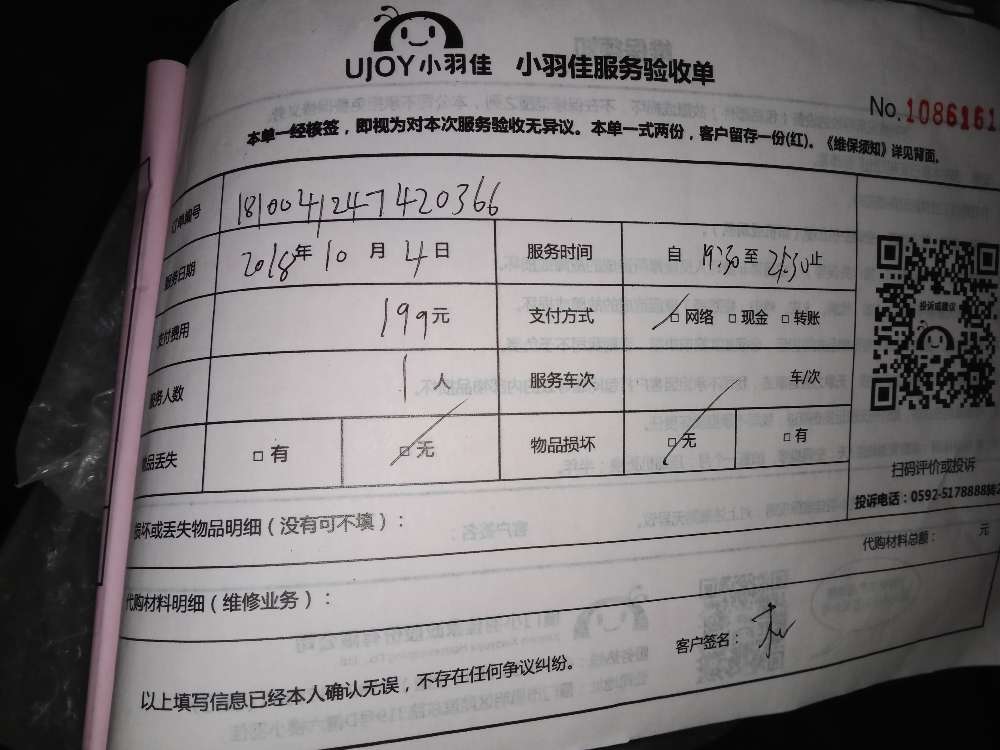 UJOY小羽佳 小羽佳服务验收单
No.1086161
本单一经核签，即视为对本次服务验收无异议。本单一式两份，客户留存一份(红)。《维保须知》详见背面。
订单编号 1810041247420366
服务日期 2018年10月4日 服务时间 自 19:30 至 21:30 止
支付费用 199元 支付方式 □ 网络 □ 现金 □ 转账
服务人数 1人 服务车次 车/次
物品丢失 □ 有 □ 无 物品损坏 □ 无 □ 有
投诉或建议
扫码评价或投诉
投诉电话：0592-5178888转2
损坏或丢失物品明细（没有可不填）：
代购材料总额： 元
代购材料明细（维修业务）：
客户签名：
以上填写信息已经本人确认无误，不存在任何争议纠纷。